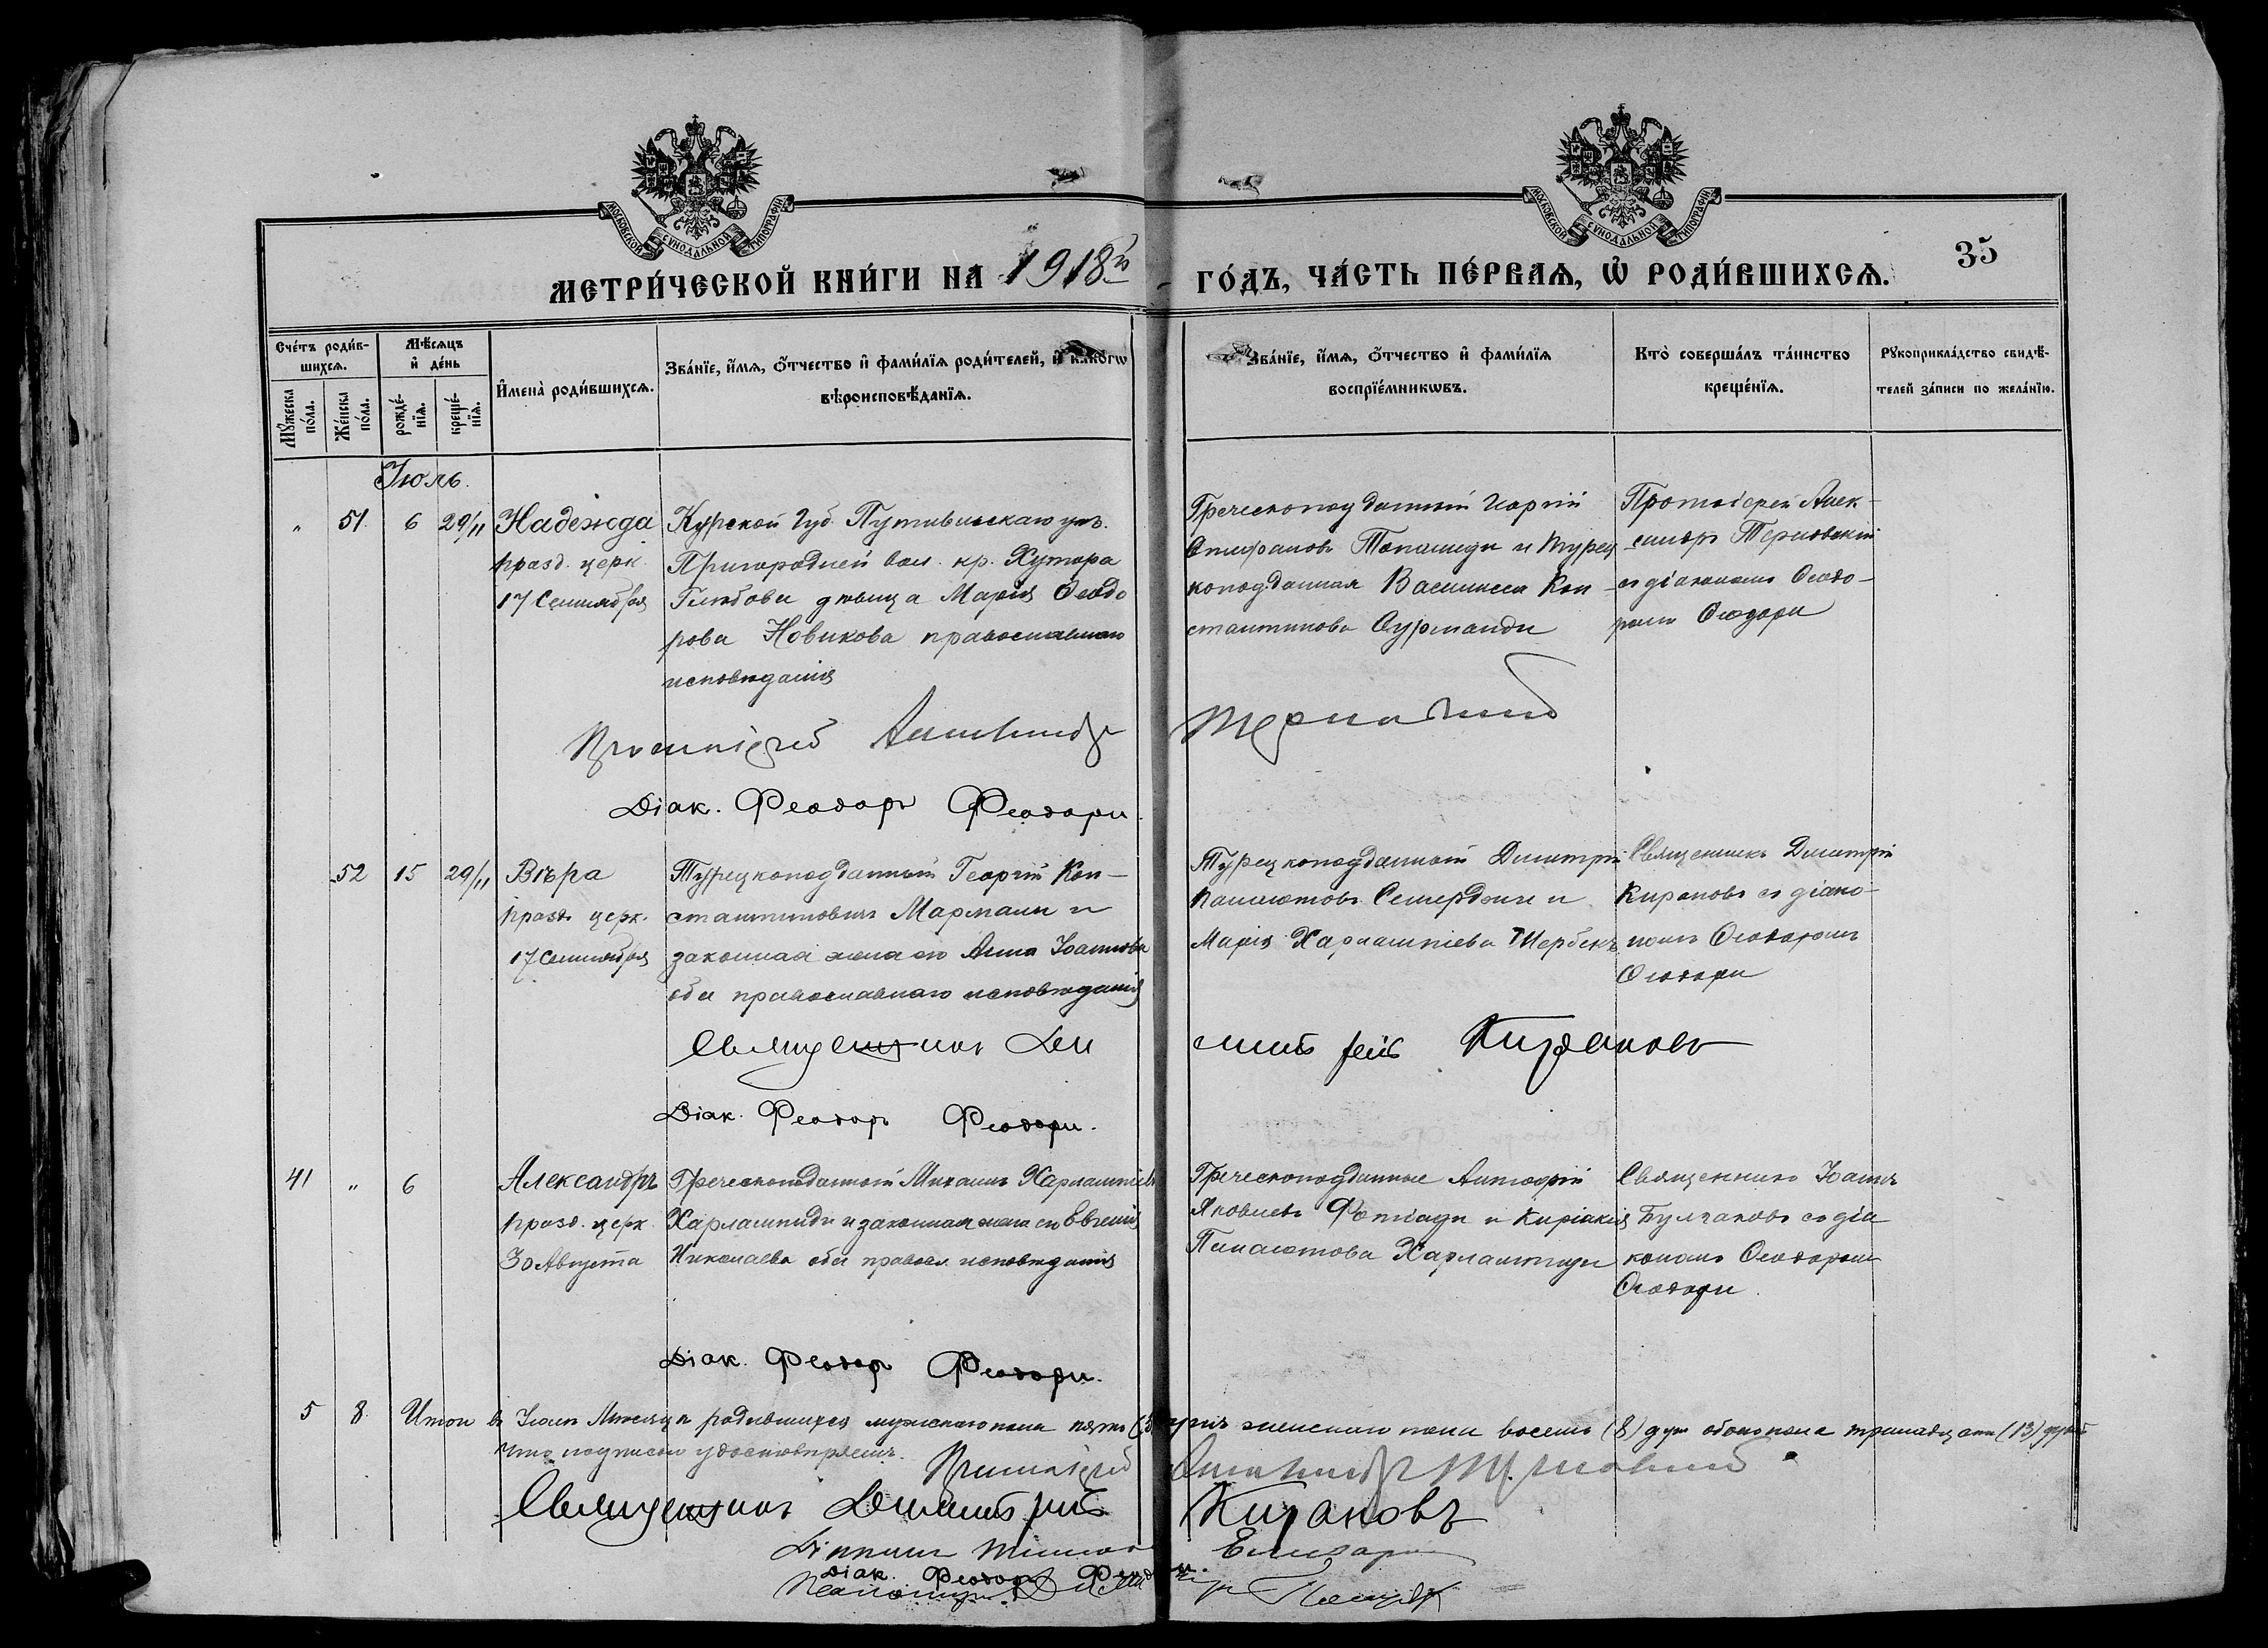 МОСКОВСКОЙ СѴНОДАЛЬНОЙ ТИПОГРАФІИ
МОСКОВСКОЙ СѴНОДАЛЬНОЙ ТИПОГРАФІИ
35
МЕТРИ́ЧЕСКОЙ КНИ́ГИ НА 1918й ГО́ДЪ, ЧА́СТЬ ПЕ́РВАѦ, Ѡ҆ РОДИ́ВШИХСѦ.
Сче́тъ роди́в-
шихсѧ.
Мꙋ́жеска по́ла.
Же́нска по́ла.
Мѣ́сѧцъ и҆ де́нь
рожде́-нїѧ.
креще́-нїѧ.
И҆мена̀ роди́вшихсѧ.
Зва́нїе, и҆́мѧ, ѻ҆́тчество и҆ фамі́лїѧ роди́телей, и҆ како́гѡ
вѣроисповѣ́данїѧ.
Зва́нїе, и҆́мѧ, ѻ҆́тчество и҆ фамі́лїѧ
воспрїе́мникѡвъ.
Кто̀ соверша́лъ та́инство
креще́нїѧ.
Рꙋкоприкла́дство свидѣ́-
телей за́писи по жела́нїю.
Іюль.
" 51. 6 29/11 Надежда
празд. церк.
17 Сентября
Курской Губ. Путивльскаго уѣз.
Пригородней вол. кр. Хутора
Глѣбова дѣвица Марія Ѳеодо
рова Новикова православнаго
исповѣданія
Греческоподданный Георгій
Епифановъ Топалиди и турец
коподданная Василисса Кон-
стантинова
Протоіерей Алек-
сандръ Терновскій
съ діакономъ Ѳеодо-
ромъ Ѳеодори
Протоіерей Александръ Терновскій
Діак. Феодоръ Феодори.
52 15 29/11 Вѣра
празд. церк.
17 Сентября
Турецкоподданный Георгій Кон-
стантиновичъ Мармали и
законная жена его Анна Іоаннова
оба православнаго исповѣданія
Турецкоподданный Димитрій
Панаіотовъ и
Марія Харлампіева
Священникъ Димитрій
Кирановъ съ діако-
номъ Ѳеодоромъ
Ѳеодори
Священникъ Димитрій Кирановъ
Діак. Феодоръ Феодори.
41 " 6 Александръ
празд. церк.
30 Августа
Греческоподданный Михаилъ Харлампіевъ
Харлампиди и законная жена его Евгенія
Николаева оба правосл. исповѣданія
Греческоподданные
Яковлевъ Фотіади и Киріакія
Панаіотова Харлампиди
Священникъ Іоаннъ
Булгаковъ съ діа
кономъ Ѳеодоромъ
Ѳеодори.
Діак. Феодоръ Феодори.
5 8. Итого въ Іюлѣ Мѣсяцѣ родившихся мужскаго пола пять (5) женскаго пола восемь (8) душ обоего пола тринадцать (13) душъ
что подписомъ удостовѣряемъ.
Протоіерей Александръ Терновскій
Священникъ Димитрій Кирановъ
Діак. Феодоръ Феодори.